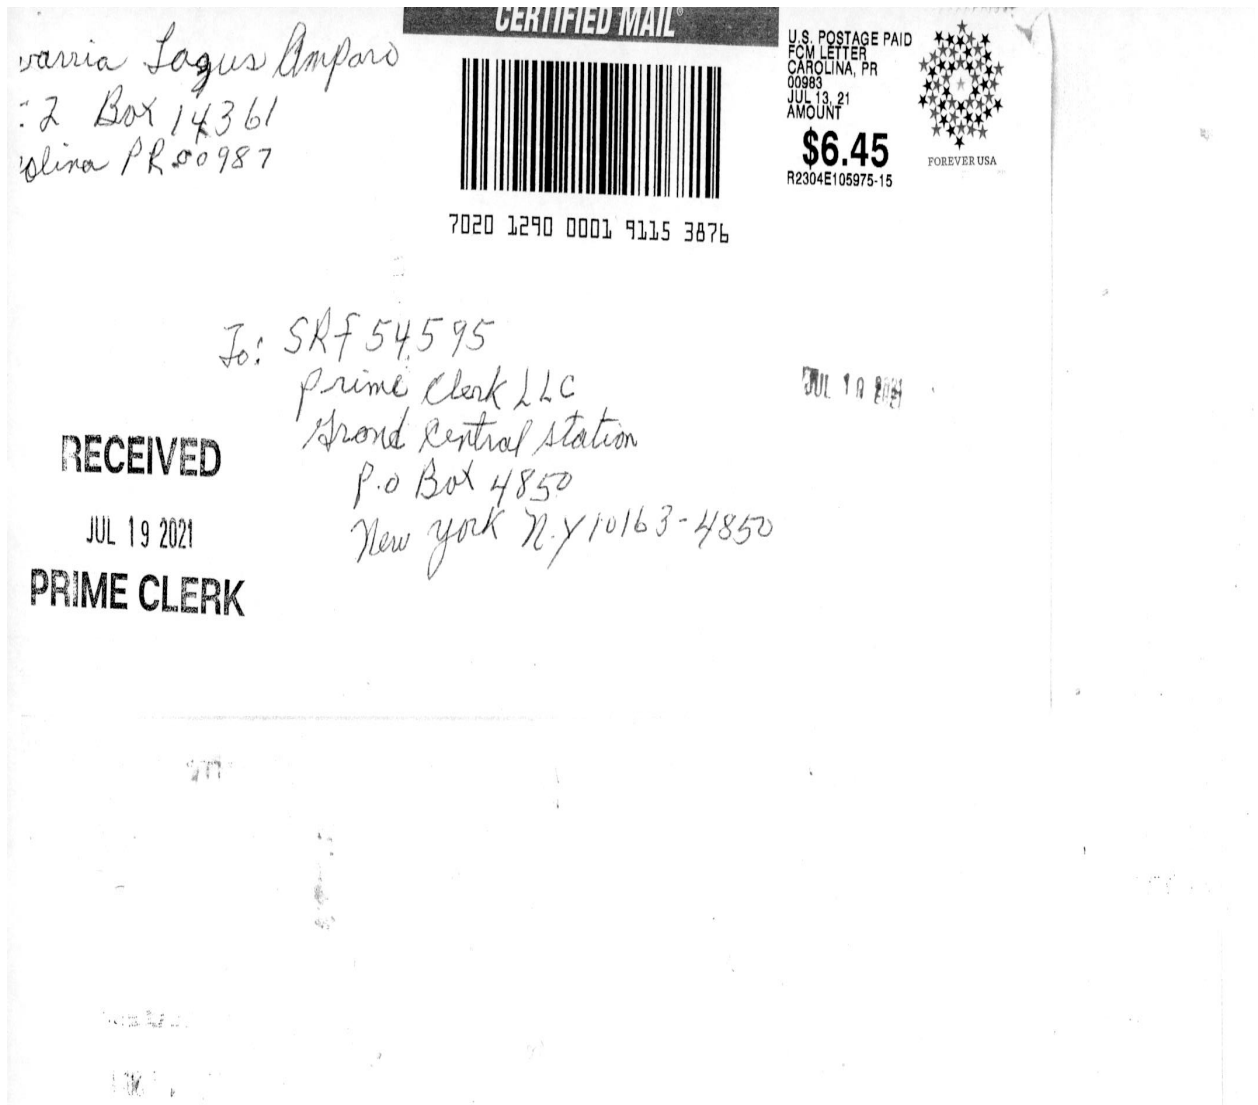 CERTIFIED MAIL®
varria Lagus Amparo
2 Box 14361
olina PR 00987
7020 1290 0001 9115 3876
U.S. POSTAGE PAID
FCM LETTER
CAROLINA, PR
00983
JUL 13, 21
AMOUNT
$6.45
R2304E105975-15
FOREVER USA
To: SRf 54595
Prime Clerk LLC
Grand Central Station
P.O Box 4850
New York N.Y 10163-4850
JUL 19 2021
RECEIVED
JUL 19 2021
PRIME CLERK